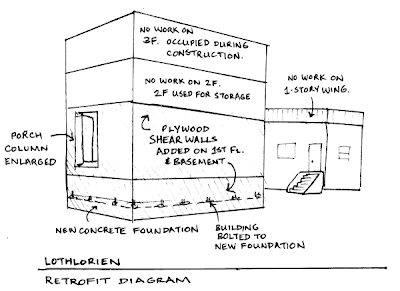 NO WORK ON
3F. OCCUPIED DURING
CONSTRUCTION.
NO WORK ON 2F.
2F USED FOR STORAGE
NO WORK ON
1-STORY WING.
PORCH
COLUMN
ENLARGED
PLYWOOD
SHEAR WALLS
ADDED ON 1ST FL.
& BASEMENT
NEW CONCRETE FOUNDATION
BUILDING
BOLTED TO
NEW FOUNDATION
LOTHLORIEN
RETROFIT DIAGRAM